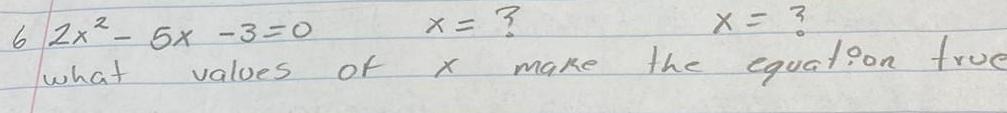 6 2x² - 5x - 3 = 0 x = ? x = ?
what values of x make the equation true